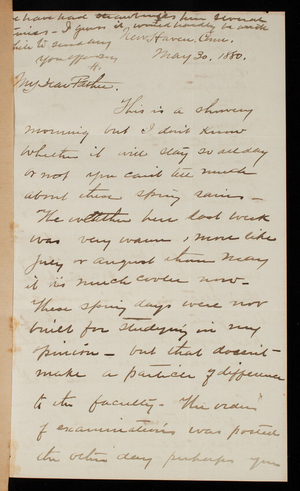 We have had strawberries here several
times - I guess it would hardly be worth
while to send any
Your aff. son
H.
New Haven, Conn.
May 30, 1880.
My Dear Father.
This is a showery
morning but I don't know
whether it will stay so all day
or not you can't tell much
about these spring rains -
The weather here last week
was very warm, more like
July or August than May
it is much cooler now -
These spring days were not
built for studying in my
opinion - but that doesn't
make a particle of difference
to the faculty - The order
of examinations was posted
the other day perhaps you